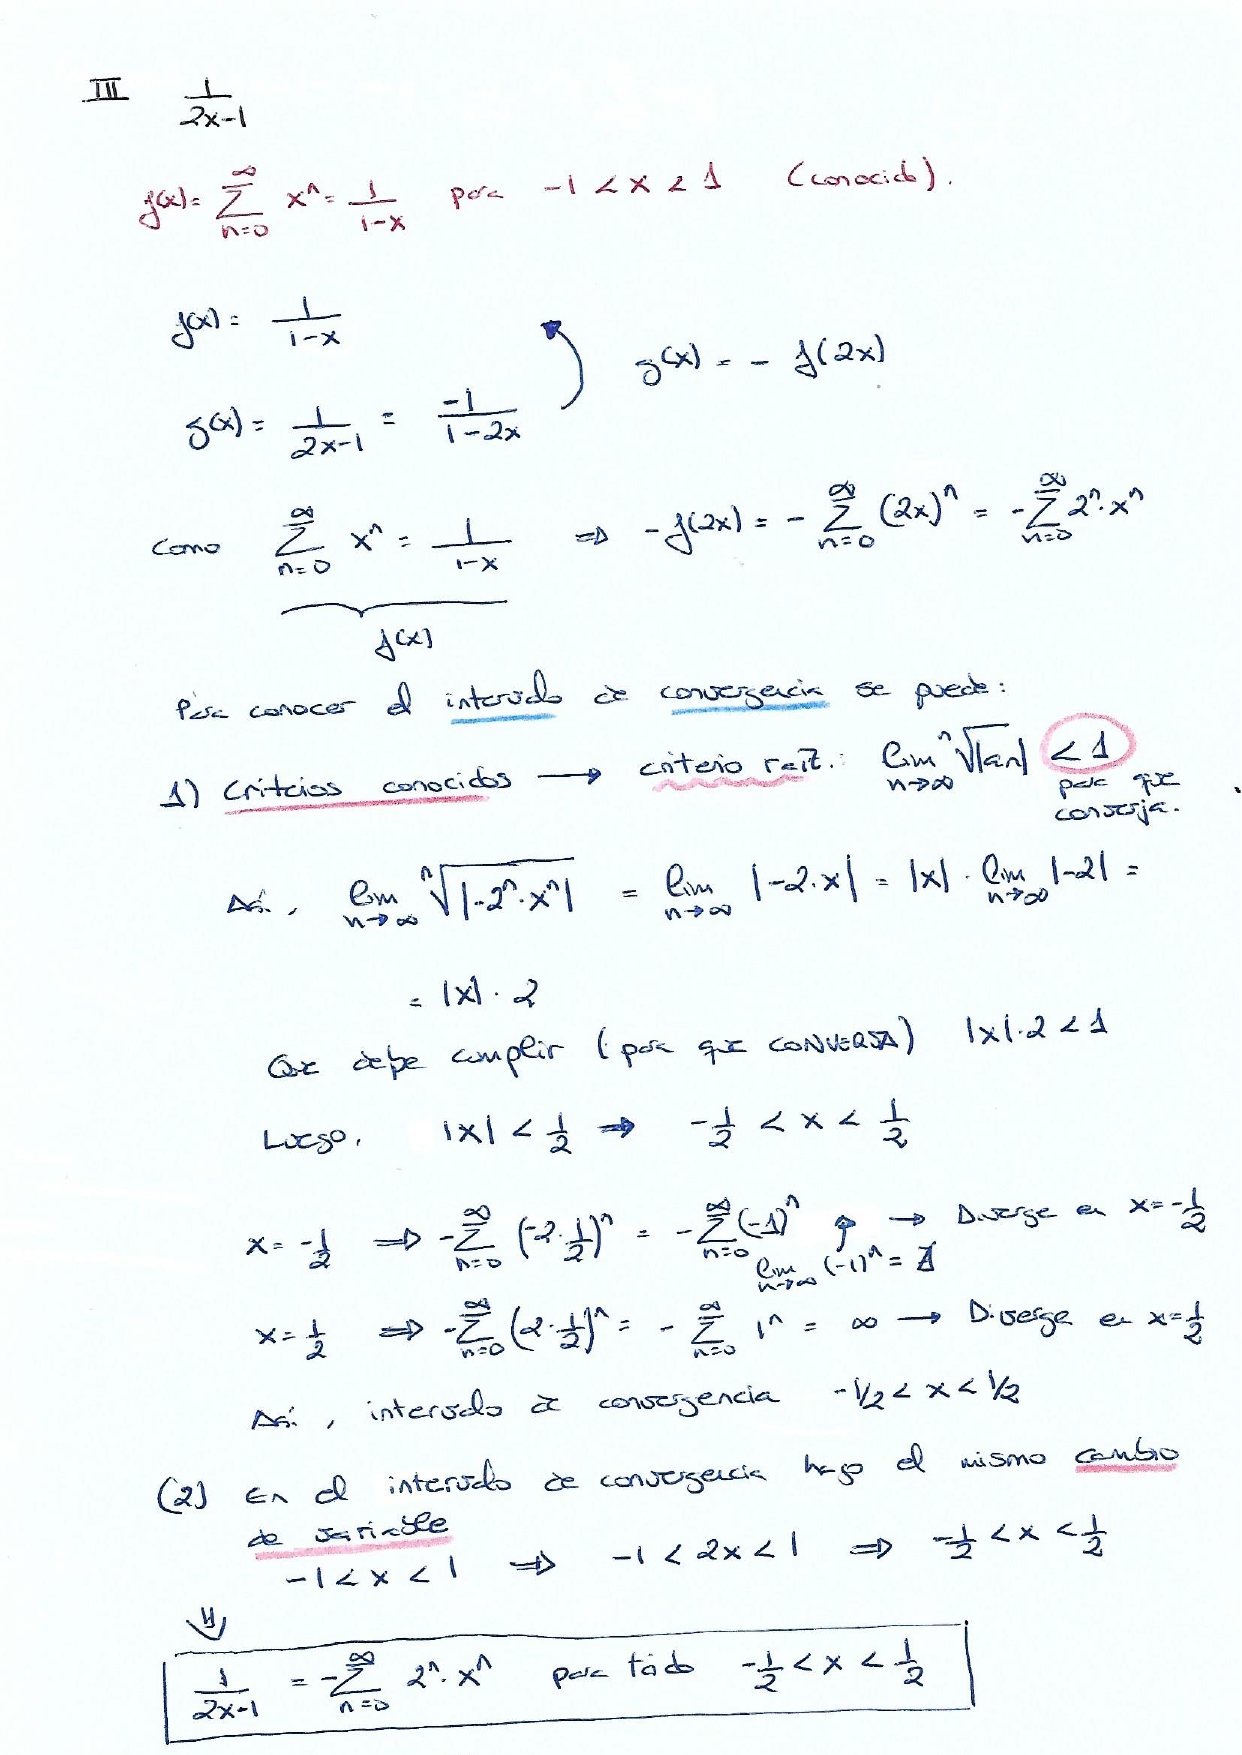 III 1/(2x-1)
f(x) = ∑_{n=0}^{∞} x^n = 1/(1-x) para -1 < x < 1 (conocido).
f(x) = 1/(1-x)
g(x) = - f(2x)
g(x) = 1/(2x-1) = -1/(1-2x)
Como ∑_{n=0}^{∞} x^n = 1/(1-x) ⇒ -f(2x) = - ∑_{n=0}^{∞} (2x)^n = -∑_{n=0}^{∞} 2^n · x^n
f(x)
Para conocer el intervalo de convergencia se puede:
1) Criterios conocidos → criterio raíz: lim_{n→∞} ⁿ√|an| < 1
para que
converja.
Así, lim_{n→∞} ⁿ√|-2^n · x^n| = lim_{n→∞} |-2·x| = |x| · lim_{n→∞} |-2| =
= |x| · 2
Que debe cumplir (para que CONVERJA) |x|·2 < 1
Luego, |x| < 1/2 ⇒ -1/2 < x < 1/2
x = -1/2 ⇒ -∑_{n=0}^{∞} (-2·1/2)^n = -∑_{n=0}^{∞} (-1)^n → Diverge en x = -1/2
lim_{n→∞} (-1)^n = ∄
x = 1/2 ⇒ -∑_{n=0}^{∞} (2·1/2)^n = - ∑_{n=0}^{∞} 1^n = ∞ → Diverge en x = 1/2
Así, intervalo de convergencia -1/2 < x < 1/2
(2) En el intervalo de convergencia hago el mismo cambio
de variable
-1 < x < 1 ⇒ -1 < 2x < 1 ⇒ -1/2 < x < 1/2
⇓
1/(2x-1) = -∑_{n=0}^{∞} 2^n · x^n para todo -1/2 < x < 1/2